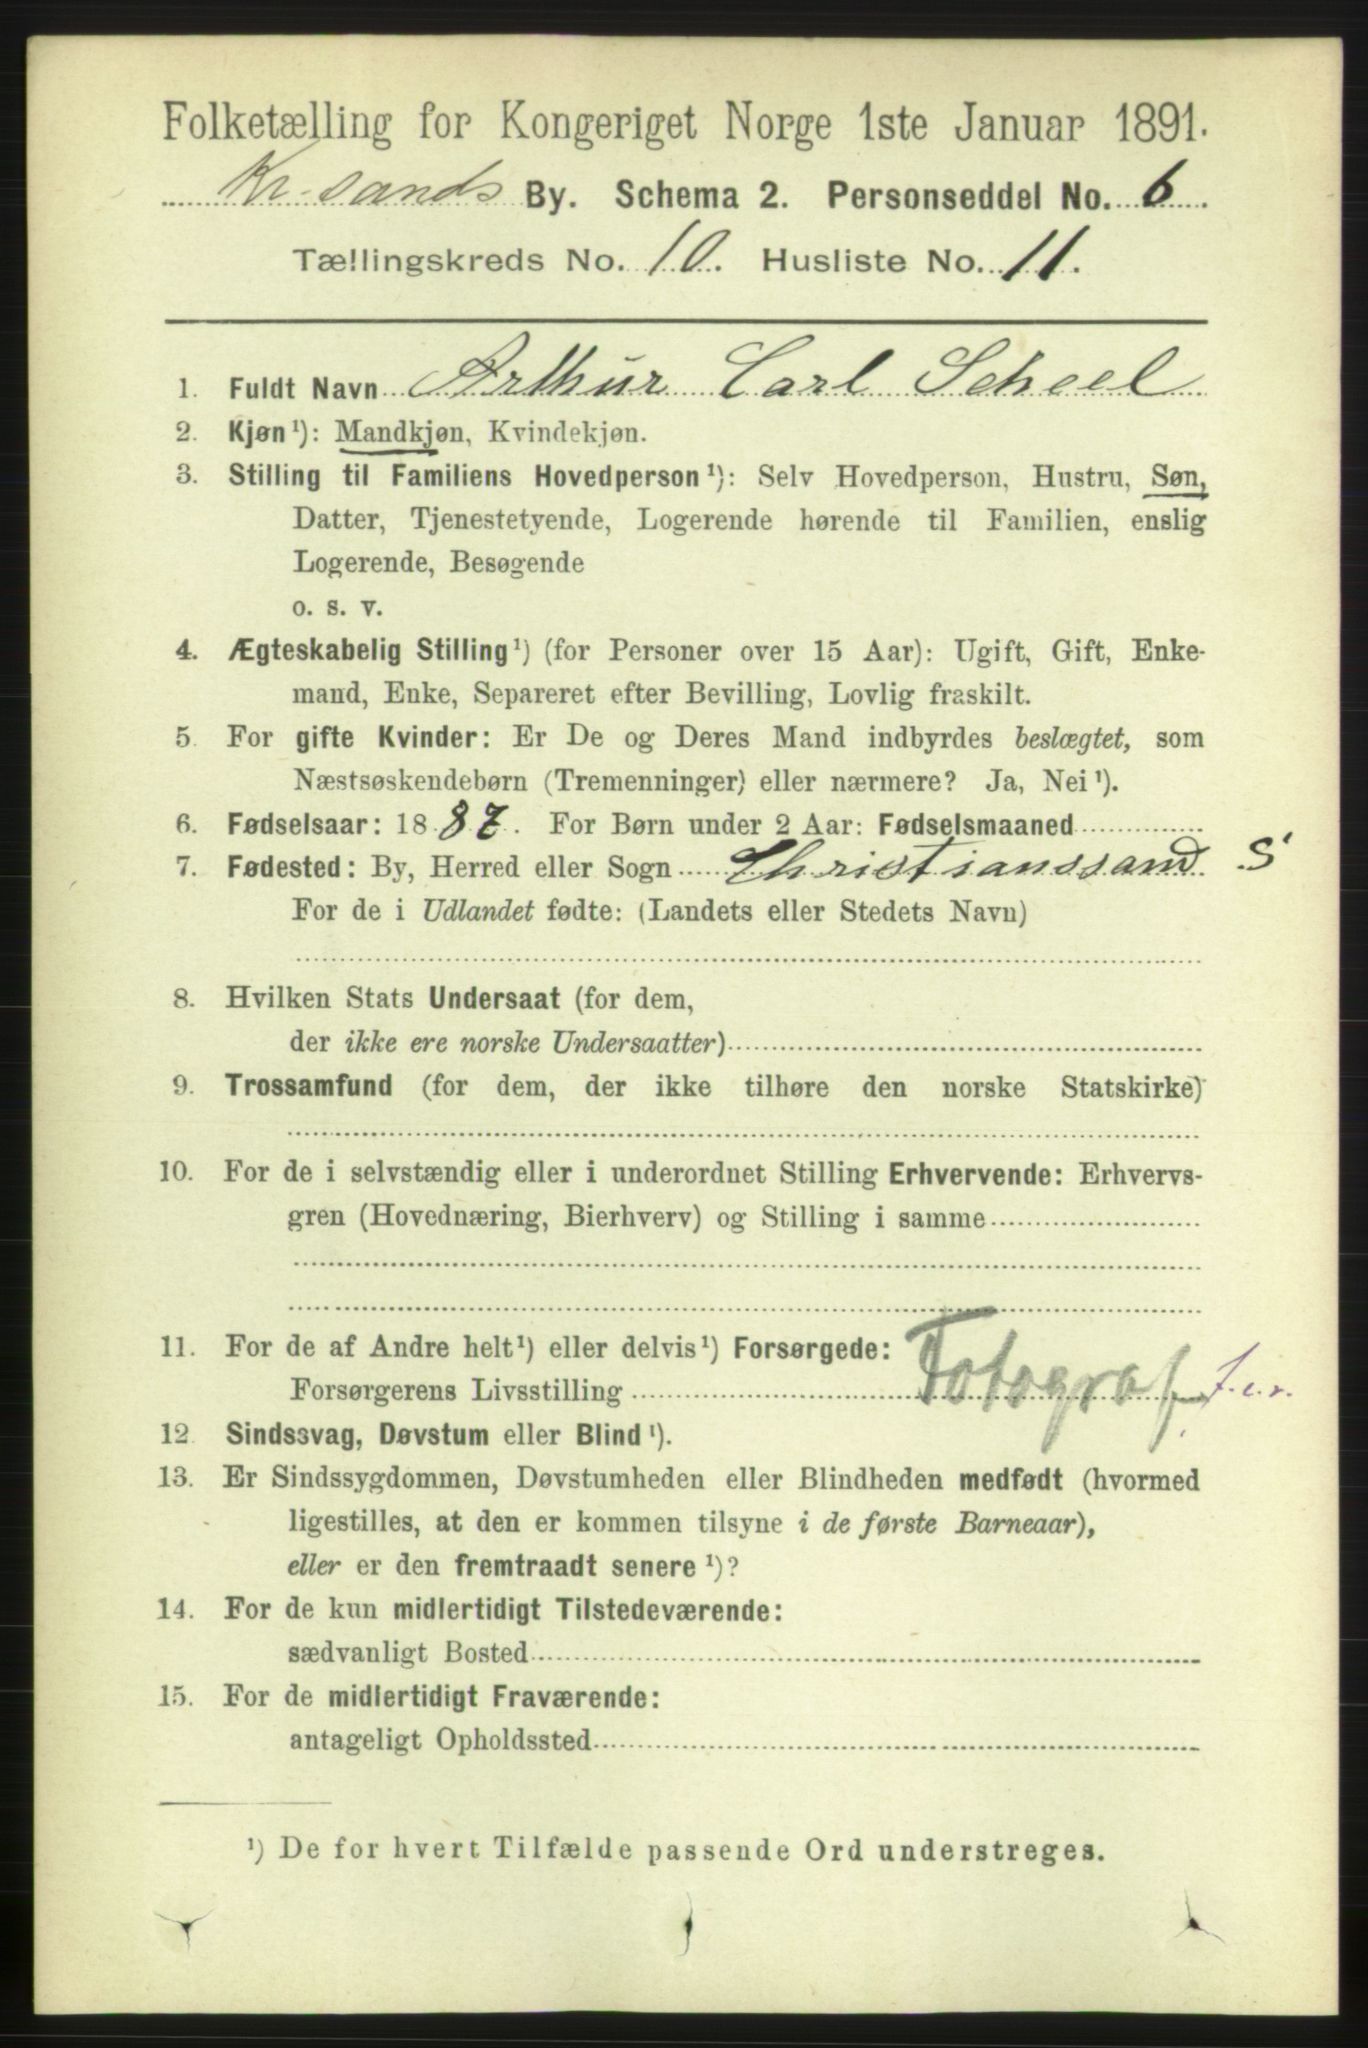 Folketælling for Kongeriget Norge 1ste Januar 1891.
Kr-sands By. Schema 2. Personseddel No. 6.
Tællingskreds No. 10. Husliste No. 11.
1. Fuldt Navn Arthur Carl Scheel
2. Kjøn¹): Mandkjøn, Kvindekjøn.
3. Stilling til Familiens Hovedperson¹): Selv Hovedperson, Hustru, Søn,
Datter, Tjenestetyende, Logerende hørende til Familien, enslig
Logerende, Besøgende
o. s. v.
4. Ægteskabelig Stilling¹) (for Personer over 15 Aar): Ugift, Gift, Enke-
mand, Enke, Separeret efter Bevilling, Lovlig fraskilt.
5. For gifte Kvinder: Er De og Deres Mand indbyrdes beslægtet, som
Næstsøskendebørn (Tremenninger) eller nærmere? Ja, Nei¹).
6. Fødselsaar: 1887. For Børn under 2 Aar: Fødselsmaaned
7. Fødested: By, Herred eller Sogn Christianssand. S
For de i Udlandet fødte: (Landets eller Stedets Navn)
8. Hvilken Stats Undersaat (for dem,
der ikke ere norske Undersaatter)
9. Trossamfund (for dem, der ikke tilhøre den norske Statskirke)
10. For de i selvstændig eller i underordnet Stilling Erhvervende: Erhvervs-
gren (Hovednæring, Bierhverv) og Stilling i samme
11. For de af Andre helt¹) eller delvis¹) Forsørgede:
Forsørgerens Livsstilling Fotograf f.e.r.
12. Sindssvag, Døvstum eller Blind¹).
13. Er Sindssygdommen, Døvstumheden eller Blindheden medfødt (hvormed
ligestilles, at den er kommen tilsyne i de første Barneaar),
eller er den fremtraadt senere¹)?
14. For de kun midlertidigt Tilstedeværende:
sædvanligt Bosted
15. For de midlertidigt Fraværende:
antageligt Opholdssted
¹) De for hvert Tilfælde passende Ord understreges.